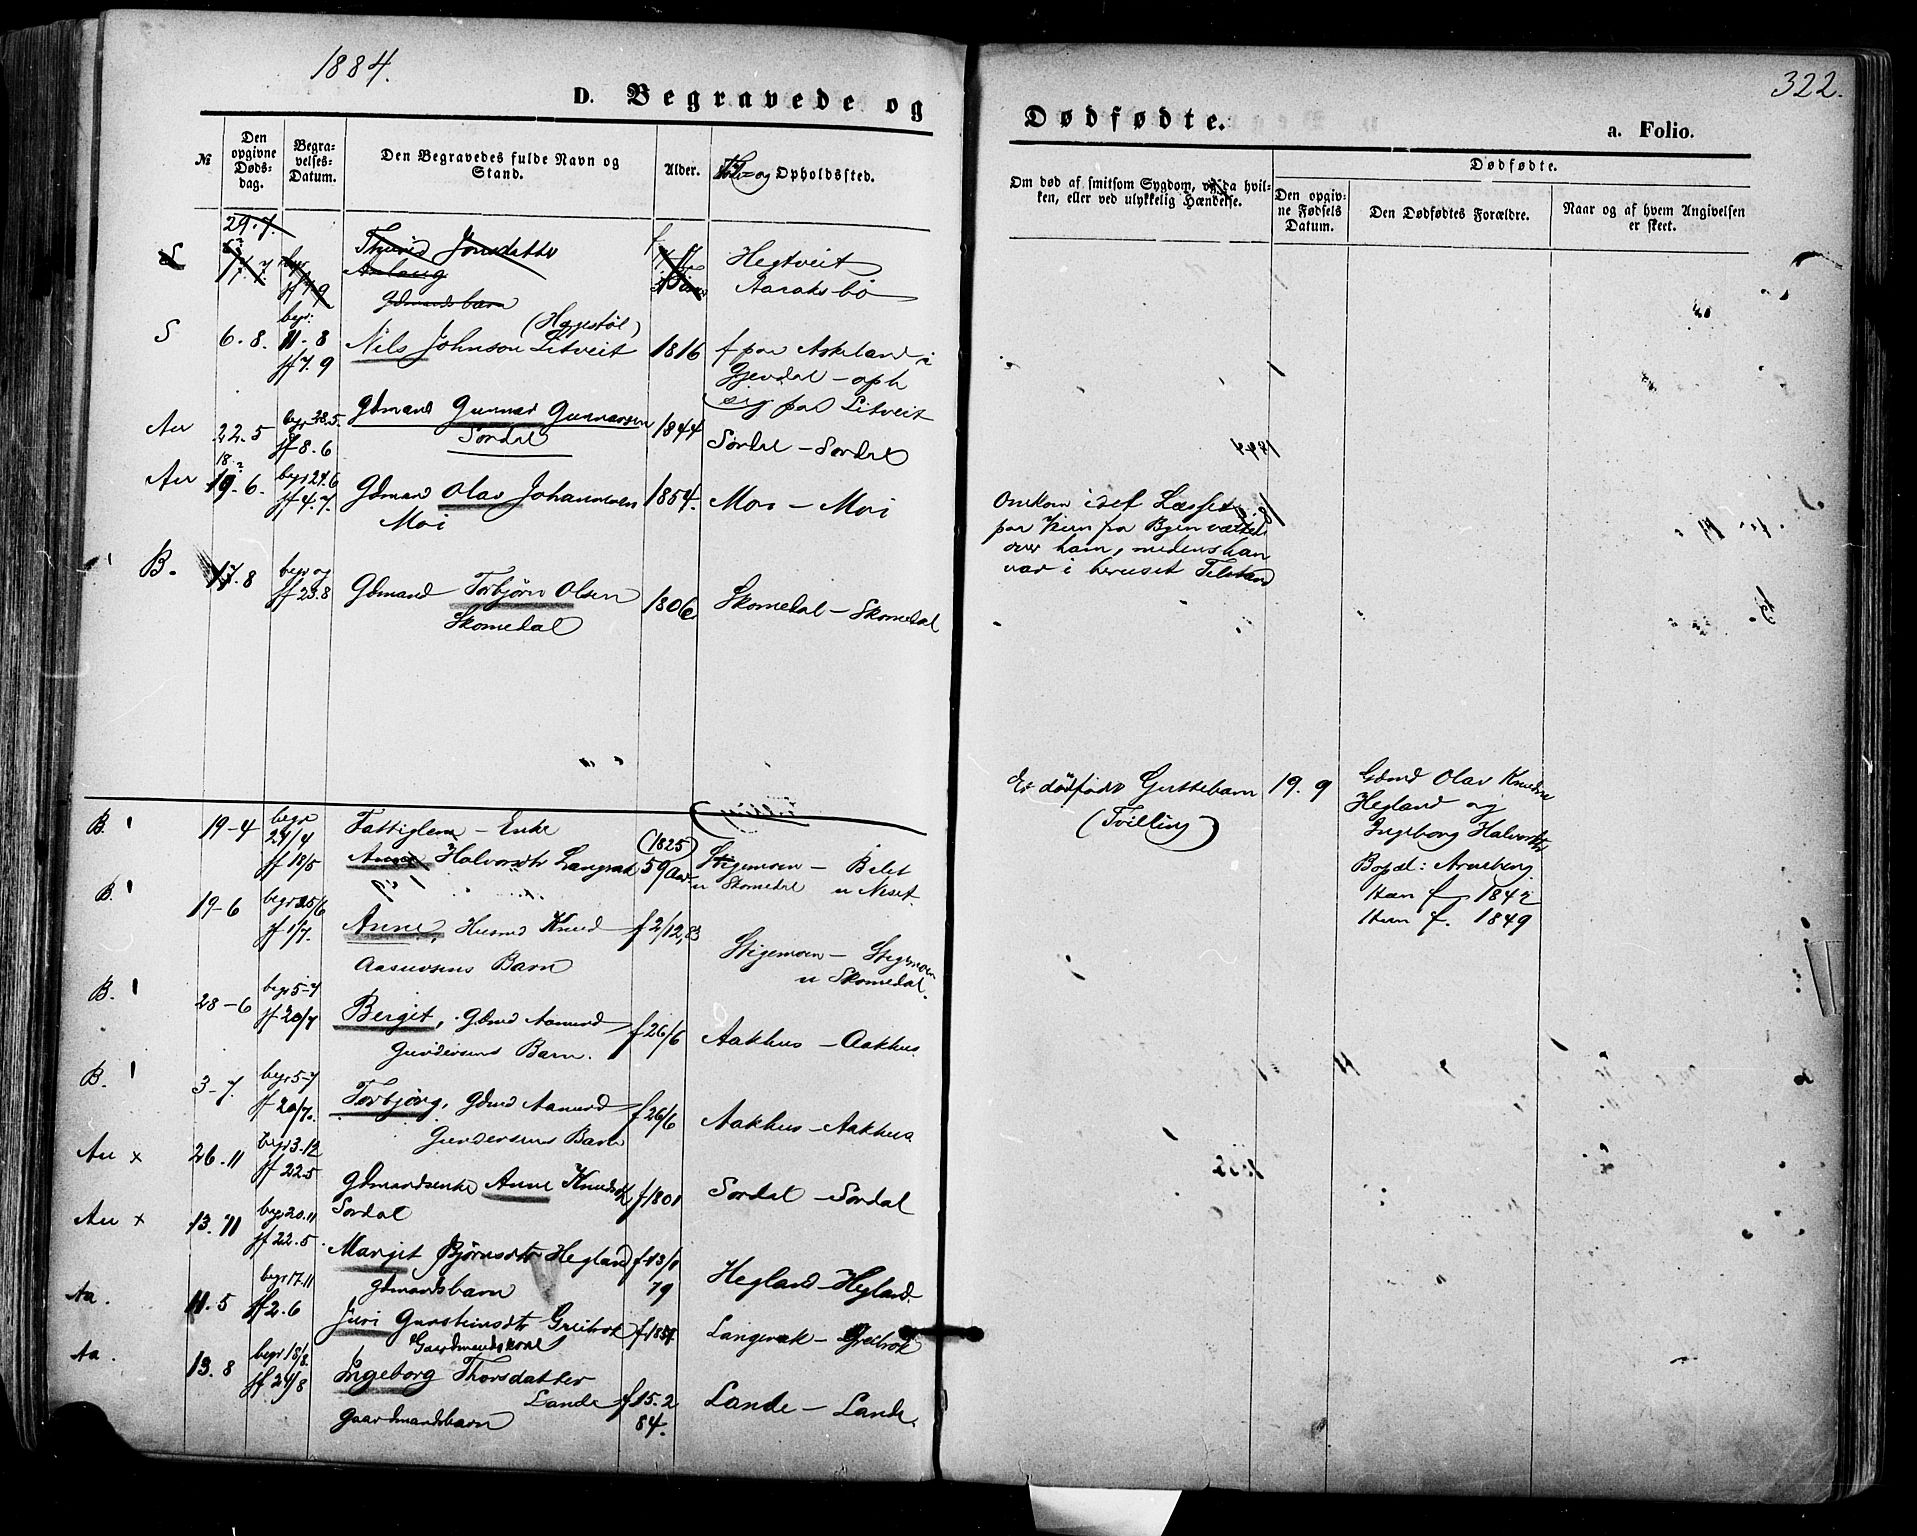 1884.
322.
D. Begravede og
Dødfødte.
a. Folio.
№
Den opgivne Dødsdag.
Begravelses-Datum.
Den Begravedes fulde Navn og Stand.
Alder.
og Opholdssted.
Om død af smitsom Sygdom, og fra hvilken, eller ved ulykkelig Hændelse.
Dødfødte.
Den opgivne Fødsels Datum.
Den Dødfødtes Forældre.
Naar og af hvem Angivelsen er skeet.
29.7.
S 17.7 begr ff 7.9 Jonsdatter
Aslaug
Gdmandsbarn
Hegtveit
Aaraksbø
S 6.8. begr: 11.8 ff 7.9 Nils Johnson Litveit 1816 f paa Askeland i
Gjevdal – oph
sig paa Litveit
Au 22.5 begr 28.5. ff 8.6 Gdmand Gunnar Gunnarsen 1844 Sordal – Sordal
Sordal
Au 18? 19.6. begr 24.6 ff 4.7. Gdmand Olav Johannesen 1854. Moi – Moi
Moi
Omkom idet Læsset
paa Veien fra Byen væltede
over ham, medens han
var i beruset Tilstand
B. 17.8 begr og ff 23.8 Gdmand Torbjørn Olsen 1806 Skomedal – Skomedal
Skomedal
Et dødfødt Guttebarn
(Tvilling)
19.9
Gdmd Olav Knudsen
Hegland og
Ingeborg Halvorsdtr
Bopæl: Arneberg.
Han f. 1842
Hun f. 1849
B. 19–4 begr 24/4 ff 18/5 Fattiglem – Enke (1825)
Halvorsdtr Langerak 59 Aar Stigemoen – Belet
u Skomedal u Neset.
B. 19–6 begr 25/6 ff 1/7. Anne, Husmd Knud f 2/12,83 Stigemoen – Stigemoen
Aasuvsens Barn u Skomedal.
B. 28–6 begr 5–7 ff 20/7 Bergit, Gdmd Aamund f 26/6 Aakhus – Aakhus.
Gundersens Barn.
B. 3–7. begr 5–7 ff 20/7. Torbjørg, Gdmd Aamund f 26/6 Aakhus – Aakhus
Gundersens Barn
Au x 26.11 begr 3.12 ff 22.5 Gdmandsenke Anne Knudsdtr f 1801 Sordal – Sordal
Sordal
Au x 13.11 begr 20.11 ff 22.5. Margit Bjørnsdtr Hegland f 13/1 79 Hegland – Hegland.
Gdmandsbarn
Aa. 11.5 begr 17.11 ff 2.6 Juri Gunsteinsdtr Greibrok Langerak – Greibrok
Gaardmandskone
Aa. 13.8 begr 18/8. ff 24/8 Ingeborg Thorsdatter
Lande f 15.2 84. Lande – Lande.
Gaardmandsbarn